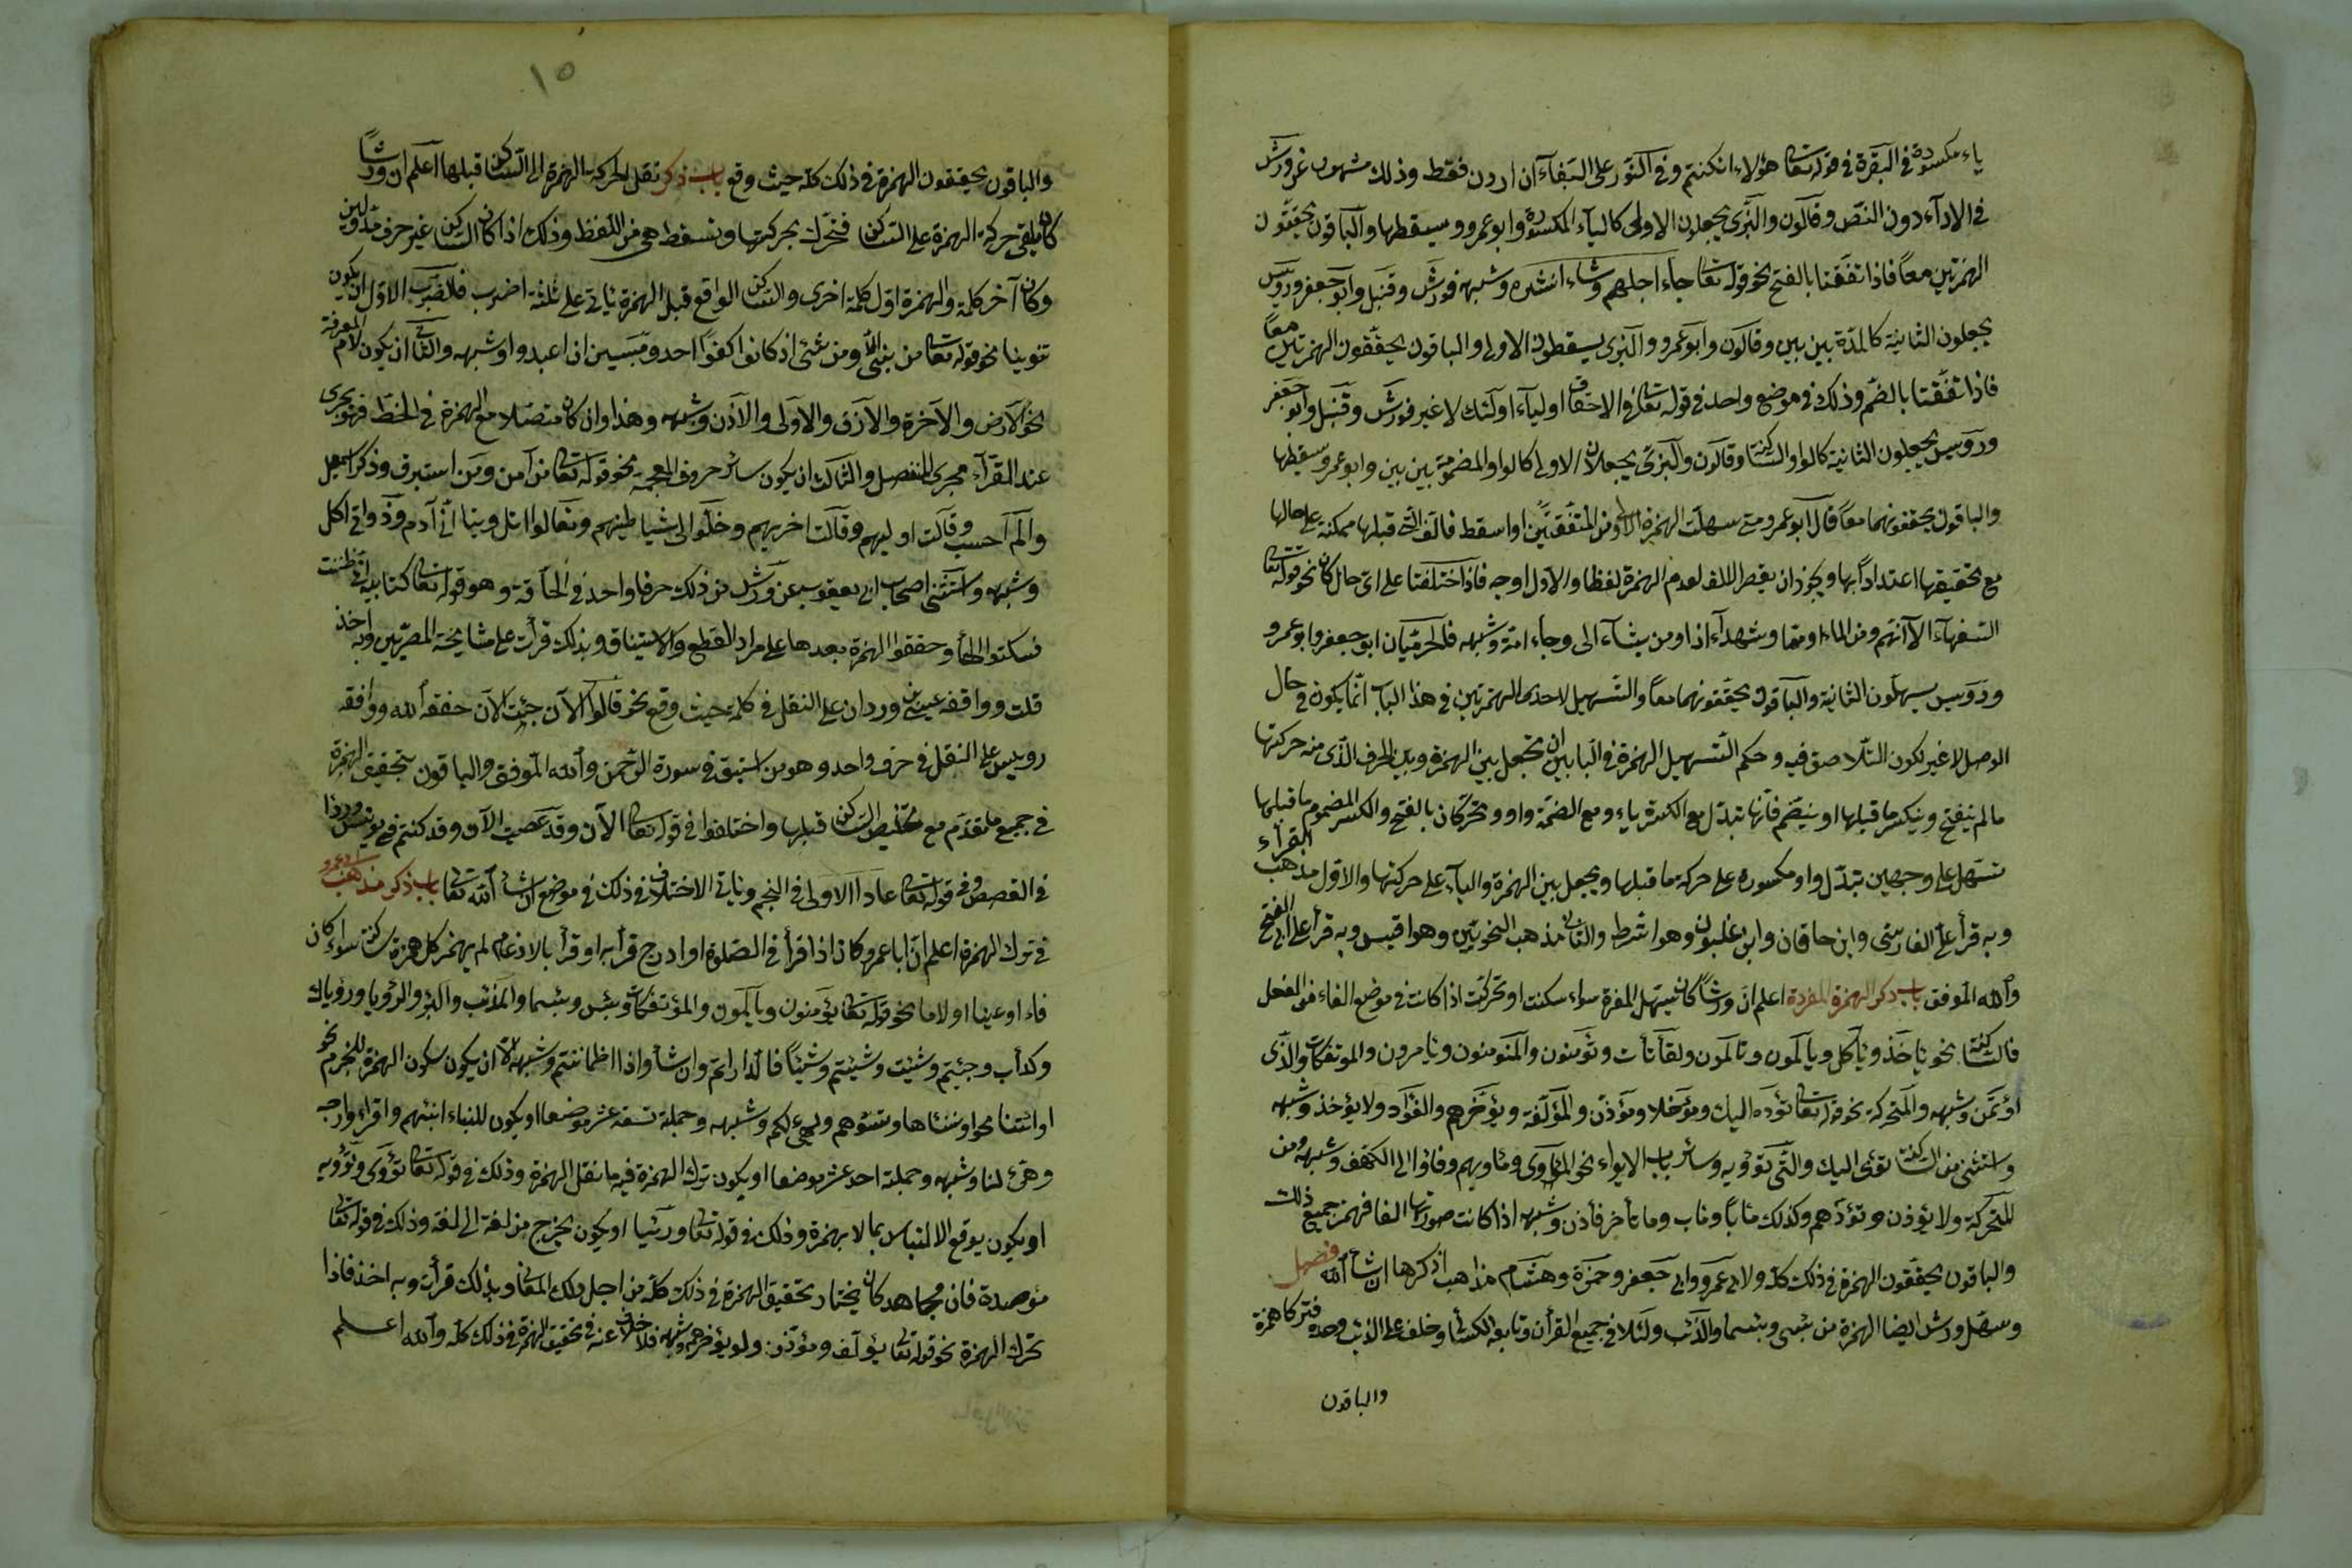 ياء مكسورة في البقرة في قوله تعا هؤلاء ان كنتم وفي النور على البغاء ان اردن فقط وذلك مشهور عن ورش
في الاداء دون النص وقالون والبزى يجعلون الاولى كالياء المكسورة وابو عمرو يسقطها والباقون يحققون
الهمزتين معا فاذا اتفقتا بالفتح نحو قوله تعا جاء اجلهم وشاء انشره وشبهه فورش وقنبل وابو جعفر ورويس
يجعلون الثانية كالمدة بين بين وقالون وابو عمرو والبزى يسقطون الاولى والباقون يحققون الهمزتين معا
فاذا اتفقتا بالضم وذلك في موضع واحد في قوله تعا في الاحقاف اولياء اولئك لا غير فورش وقنبل وابو جعفر
ورويس يجعلون الثانية كالواو الساكنة وقالون والبزى يجعلان الاولى كالواو المضمومة بين بين وابو عمرو يسقطها
والباقون يحققونهما معا قال ابو عمرو متى سهلت الهمزة الاولى من المتفقتين او اسقط فالالف التى قبلها ممكنة على حالها
مع تحقيقها اعتدادا بها ويجوز ان يقصر الالف لعدم الهمزة لفظا والاول اوجه فاذا اختلفتا على اى حال كان نحو قوله تعا
السفهاء الا انهم ومن الماء او مما وشهداء اذ او من يشاء الى وجاء امة وشبهه فالحرميان ابو جعفر وابو عمرو
ورويس يسهلون الثانية والباقون يحققونهما معا والتسهيل لاحدى الهمزتين في هذا الباب انما يكون في حال
الوصل لا غير لكون التلاصق فيه وحكم التسهيل الهمزة في البابين ان تجعل بين الهمزة وبين الحرف الذى منه حركتها
ما لم ينفتح وينكسر ما قبلها او ينضم فانها تبدل مع الكسرة ياء ومع الضمة واو وتحركان بالفتح والكسر المضموم ما قبلها
تسهل على وجهين تبدل واو مكسورة على حركة ما قبلها ويجعل بين الهمزة والياء على حركتها والاول مذهب القراء
وبه قرأ على الفارسى وابن خاقان وابن غلبون وهو اشرط والثانى مذهب النحويين وهو اقيس وبه قرأ على ابى الفتح
والله الموفق باب ذكر الهمزة المفردة اعلم ان ورشا كان يسهل المفردة سواء سكنت او تحركت اذا كانت في موضع الفاء من الفعل
فالساكنة نحو ياخذ وياكل ويألمون وتألمون ولقاءنا ائت ويؤمنون والمؤمنون ويامرون والموتفكات والذى
اؤتمن وشبهه والمتحركة نحو قوله تعا يؤده اليك ومؤجلا ومؤذن والمؤلفة ويؤخرهم والفؤاد ولا يؤخذ وشبهه
واستثنى من الساكنة تؤى اليك والتى تؤويه وسائر باب الايواء نحو الماوى وماويهم وفاوا الى الكهف وشبهه ومن
المتحركة ولا يؤذن وتؤزهم وكذلك مئابا ومئاب وما تأخر فأذن وشبهه اذا كانت صورتها الفا فهمز جميع ذلك
والباقون يحققون الهمزة في ذلك كله ولابى عمرو وابى جعفر وحمزة وهشام مذاهب اذكرها ان شاء الله فصل
وسهل ورش ايضا الهمزة من بئس وبئسما والذئب ولئلا في جميع القرأن وتابعه الكسائى وخلف على الذئب وحده فتركا همزه
والباقون
١٥
والباقون يحققون الهمزة في ذلك كله حيث وقع باب ذكر نقل الحركة الهمزة الى الساكن قبلها اعلم ان ورشا
كان يلقى حركة الهمزة على الساكن فتحرك بحركتها وتسقط هى من اللفظ وذلك اذا كان الساكن غير حرف مد ولين
وكان آخر كلمة والهمزة اول كلمة اخرى والساكن الواقع قبل الهمزة ياتى على ثلثة اضرب فالضرب الاول ان يكون
تنوينا نحو قوله تعا من نبى الا ومن شئ اذ كانوا كفوا احد ومبين ان اعبدوا وشبهه والثانى ان يكون لام المعرفة
نحو الارض والآخرة والازفة والاولى والاذن وشبهه وهذا وان كان متصلا مع الهمزة في الخط فهو يجرى
عند القراء مجرى المنفصل والثالث ان يكون سائر حروف المعجمة نحو قوله تعا من آمن ومن استبرق وذكر اسمعيل
والم احسب وقالت اوليهم وقالت اخريهم وخلوا الى شياطينهم وتعالوا اتل ونبا ابنى آدم وذواتى اكل
وشبهه واستثنى اصحاب ابى يعقوب عن ورش من ذلك حرفا واحدا في الحاقة وهو قوله تعا كتابيه انى ظننت
فسكنوا الهاء وحققوا الهمزة بعدها على مراد القطع والاستيناف وبذلك قرأت على مشايخه المصريين وبه اخذ
قلت ووافقه عيسى بن وردان على النقل في كلمة حيث وقع نحو قالوا الآن جئت الآن خفف الله ووافقه
رويس على النقل في حرف واحد وهو من استبرق في سورة الرحمن والله الموفق والباقون بتحقيق الهمزة
في جميع ما تقدم مع تخليص الساكن قبلها واختلفوا في قوله تعا الآن وقد عصيت الآن وقد كنتم في يونس وردأ
في القصص وفي قوله تعا عادا الاولى في النجم وياتى الاختلاف في ذلك في موضع ان شاء الله تعا باب ذكر مذهب ابى عمرو
في ترك الهمزة اعلم ان ابا عمرو كان اذا قرأ في الصلوة او ادرج قرأته او قرأ بالادغام لم يهمز كل همزة ساكنة سواء كان
فاء او عينا او لاما نحو قوله تعا يؤمنون ويألمون والمؤتفكات وبئس وبئسما والذئب والبئر والرؤيا ورؤياك
وكدأب وجئتم وشئت وشئتم وشئنا فادارأتم وان شأ واذا اطماننتم وشبهه الا ان يكون سكون الهمزة للجزم نحو
او ائتنا نحو او ننساها وتسؤهم ويهيئ لكم وشبهه وجملة تسعة عشر موضعا او يكون للبناء انبئهم واقرا وارجه
وهيئ لنا وشبهه وجملته احد عشر موضعا او يكون ترك الهمزة فيه ما نقل الهمزة وذلك في قوله تعا تؤوى وتؤويه
او يكون يوقع الالتباس بما لا يهمزه وذلك في قوله تعا ورئيا او يكون يخرج من لغة الى لغة وذلك في قوله تعا
مؤصدة فان مجاهد كان يختار تحقيق الهمزة في ذلك كله من اجل ذلك المعانى وبذلك قرأت وبه اخذ فاذا
تحرك الهمزة نحو قوله تعا يؤلف ومؤذن ولو يؤخرهم وشبهه فلا خلاف عنه في تحقيق الهمزة في ذلك كله والله اعلم